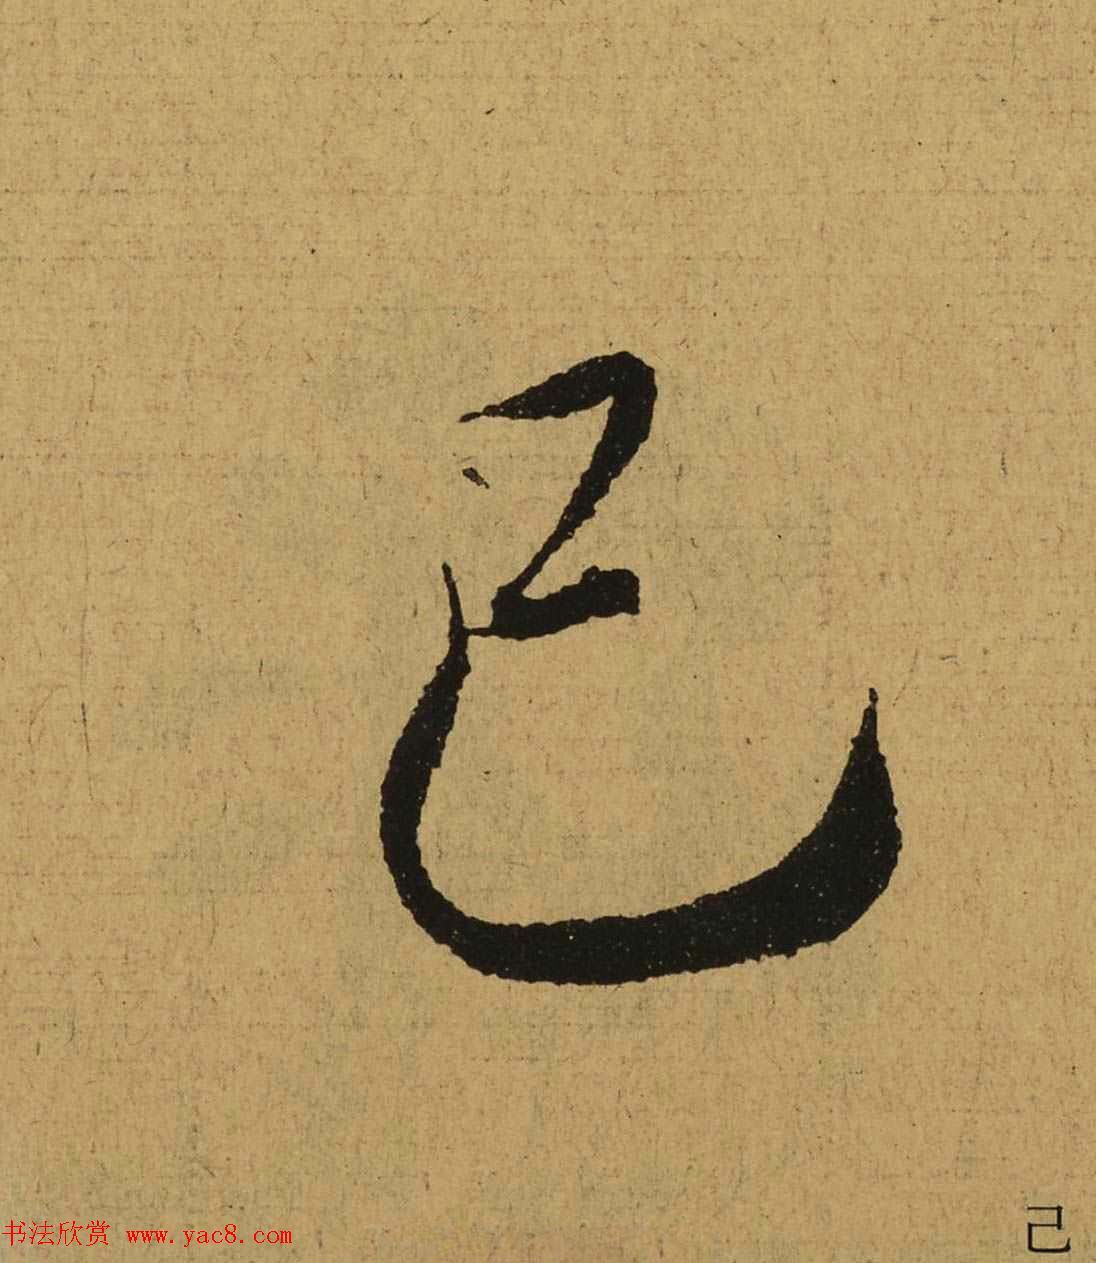 己
书法欣赏 www.yac8.com
己